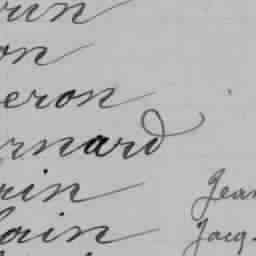 rin
on
eron
rnard
rin Jean
lain Jacq.